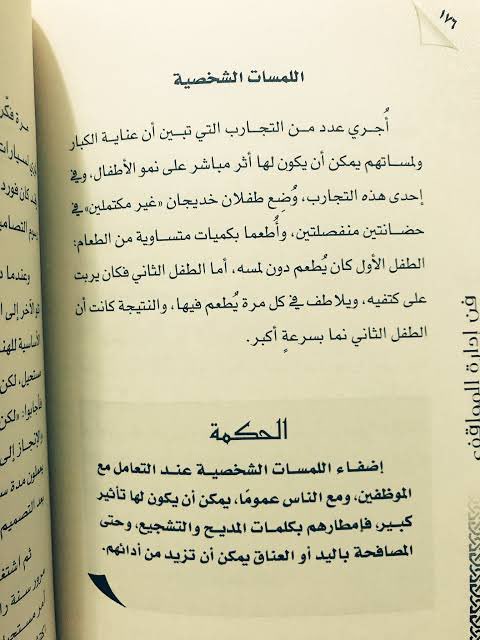 ١٧٦
اللمسات الشخصية
أُجري عدد من التجارب التي تبين أن عناية الكبار
ولمساتهم يمكن أن يكون لها أثر مباشر على نمو الأطفال، وفي
إحدى هذه التجارب، وُضِع طفلان خديجان «غير مكتملين» في
حضانتين منفصلتين، وأُطعما بكميات متساوية من الطعام:
الطفل الأول كان يُطعم دون لمسه، أما الطفل الثاني فكان يربت
على كتفيه، ويلاطف في كل مرة يُطعم فيها، والنتيجة كانت أن
الطفل الثاني نما بسرعةٍ أكبر.
الحكمة
إضفاء اللمسات الشخصية عند التعامل مع
الموظفين، ومع الناس عمومًا، يمكن أن يكون لها تأثير
كبير، فإمطارهم بكلمات المديح والتشجيع، وحتى
المصافحة باليد أو العناق يمكن أن تزيد من أدائهم.
فن إدارة المواقف
مرة فكّر
لسيارات
كان فورد
التصاميم
وعندما
الآخر إلى
الأساسية للهند
مستحيل، لكن
فأجابوا: «لكن
والإنجاز إلى
يعملون مدة
بعد التصميم
ثم اشتغل
مرور سنة